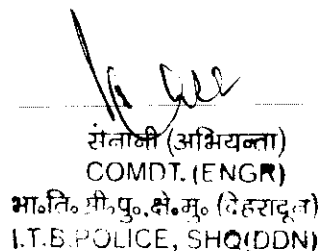 सेनानी (अभियन्ता)
COMDT. (ENGR)
भा०ति० सी०पु०,क्षे०मु० (देहरादून)
I.T.B.POLICE, SHQ(DDN)